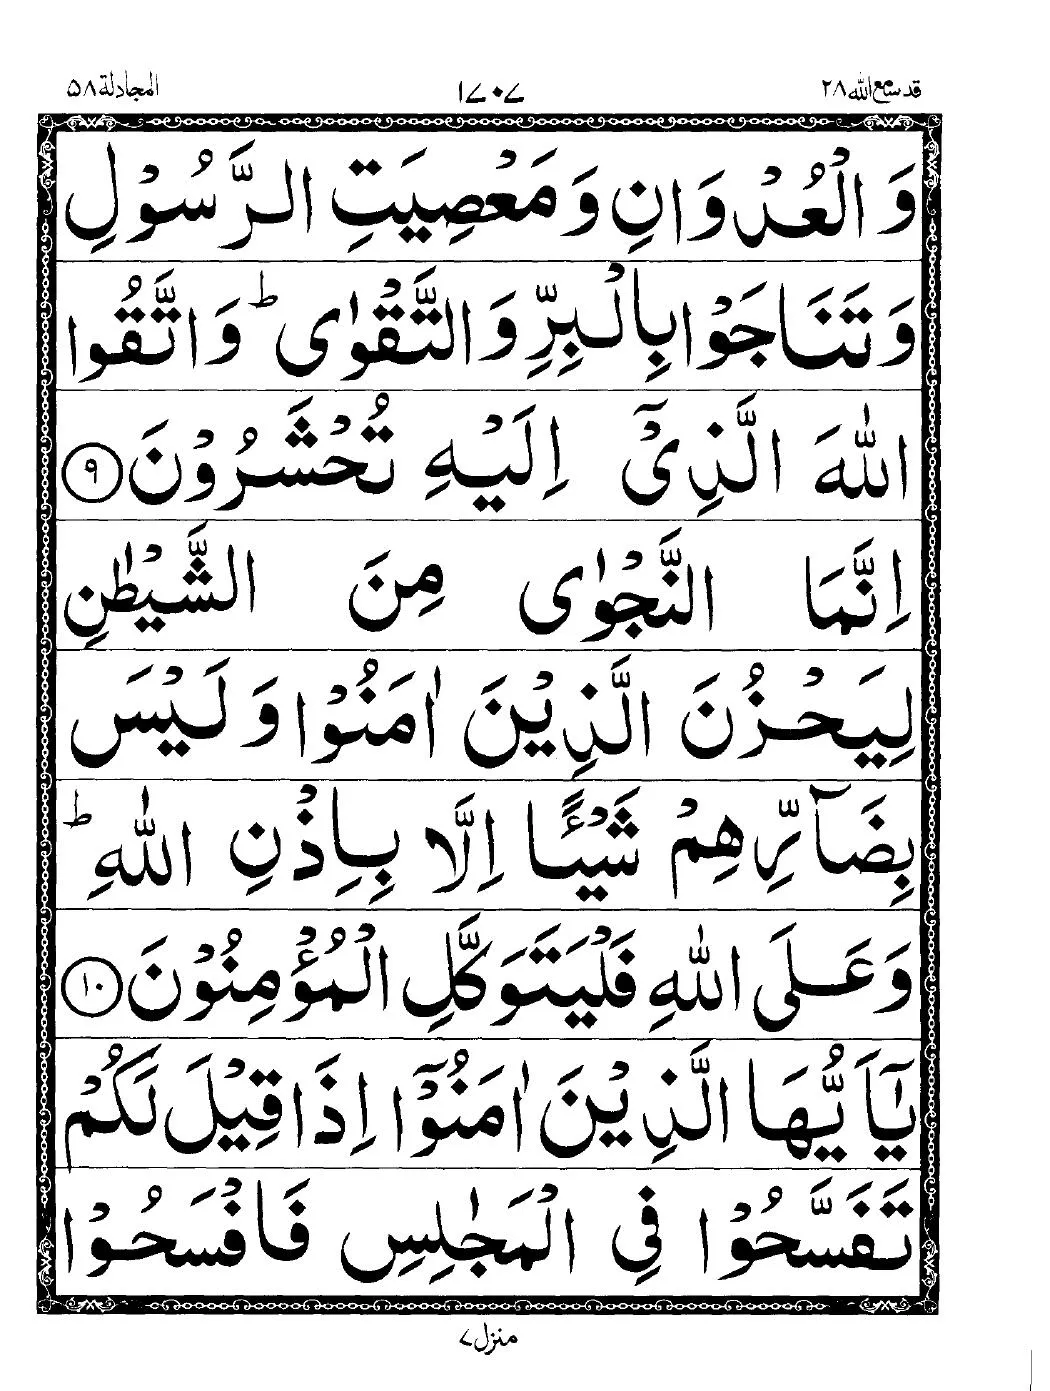 قد سمع الله ٢٨
١٧٠٧
المجادلة ٥٨
وَالْعُدْوَانِ وَمَعْصِيَتِ الرَّسُوْلِ
وَتَنَاجَوْا بِالْبِرِّ وَالتَّقْوٰى ؕ وَاتَّقُوا
اللّٰهَ الَّذِىْۤ اِلَيْهِ تُحْشَرُوْنَ ۝٩
اِنَّمَا النَّجْوٰى مِنَ الشَّيْطٰنِ
لِيَحْزُنَ الَّذِيْنَ اٰمَنُوْا وَلَيْسَ
بِضَآرِّهِمْ شَيْـًٔا اِلَّا بِاِذْنِ اللّٰهِ ؕ
وَعَلَى اللّٰهِ فَلْيَتَوَكَّلِ الْمُؤْمِنُوْنَ ۝١٠
يٰۤاَيُّهَا الَّذِيْنَ اٰمَنُوْۤا اِذَا قِيْلَ لَكُمْ
تَفَسَّحُوْا فِى الْمَجٰلِسِ فَافْسَحُوْا
منزل ٧